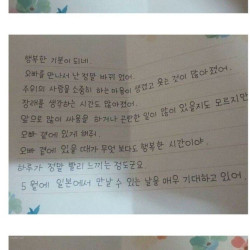 행복한 기분이 되네.
오빠를 만나서 난 정말 바뀌 었어.
주위의 사람을 소중히 하는 마음이 생겼고 웃는 것이 많아졌어.
장래를 생각하는 시간도 많아졌어.
앞으로 많이 싸움을 하거나 곤란한 일이 많이 있을지도 모르지만
오빠 곁에 있게 해줘.
오빠 곁에 있을 때가 무엇 보다도 행복한 시간이야.
하루가 정말 빨리 느끼는 정도군요
5월에 일본에서 만날 수 있는 날을 매우 기대하고 있어.